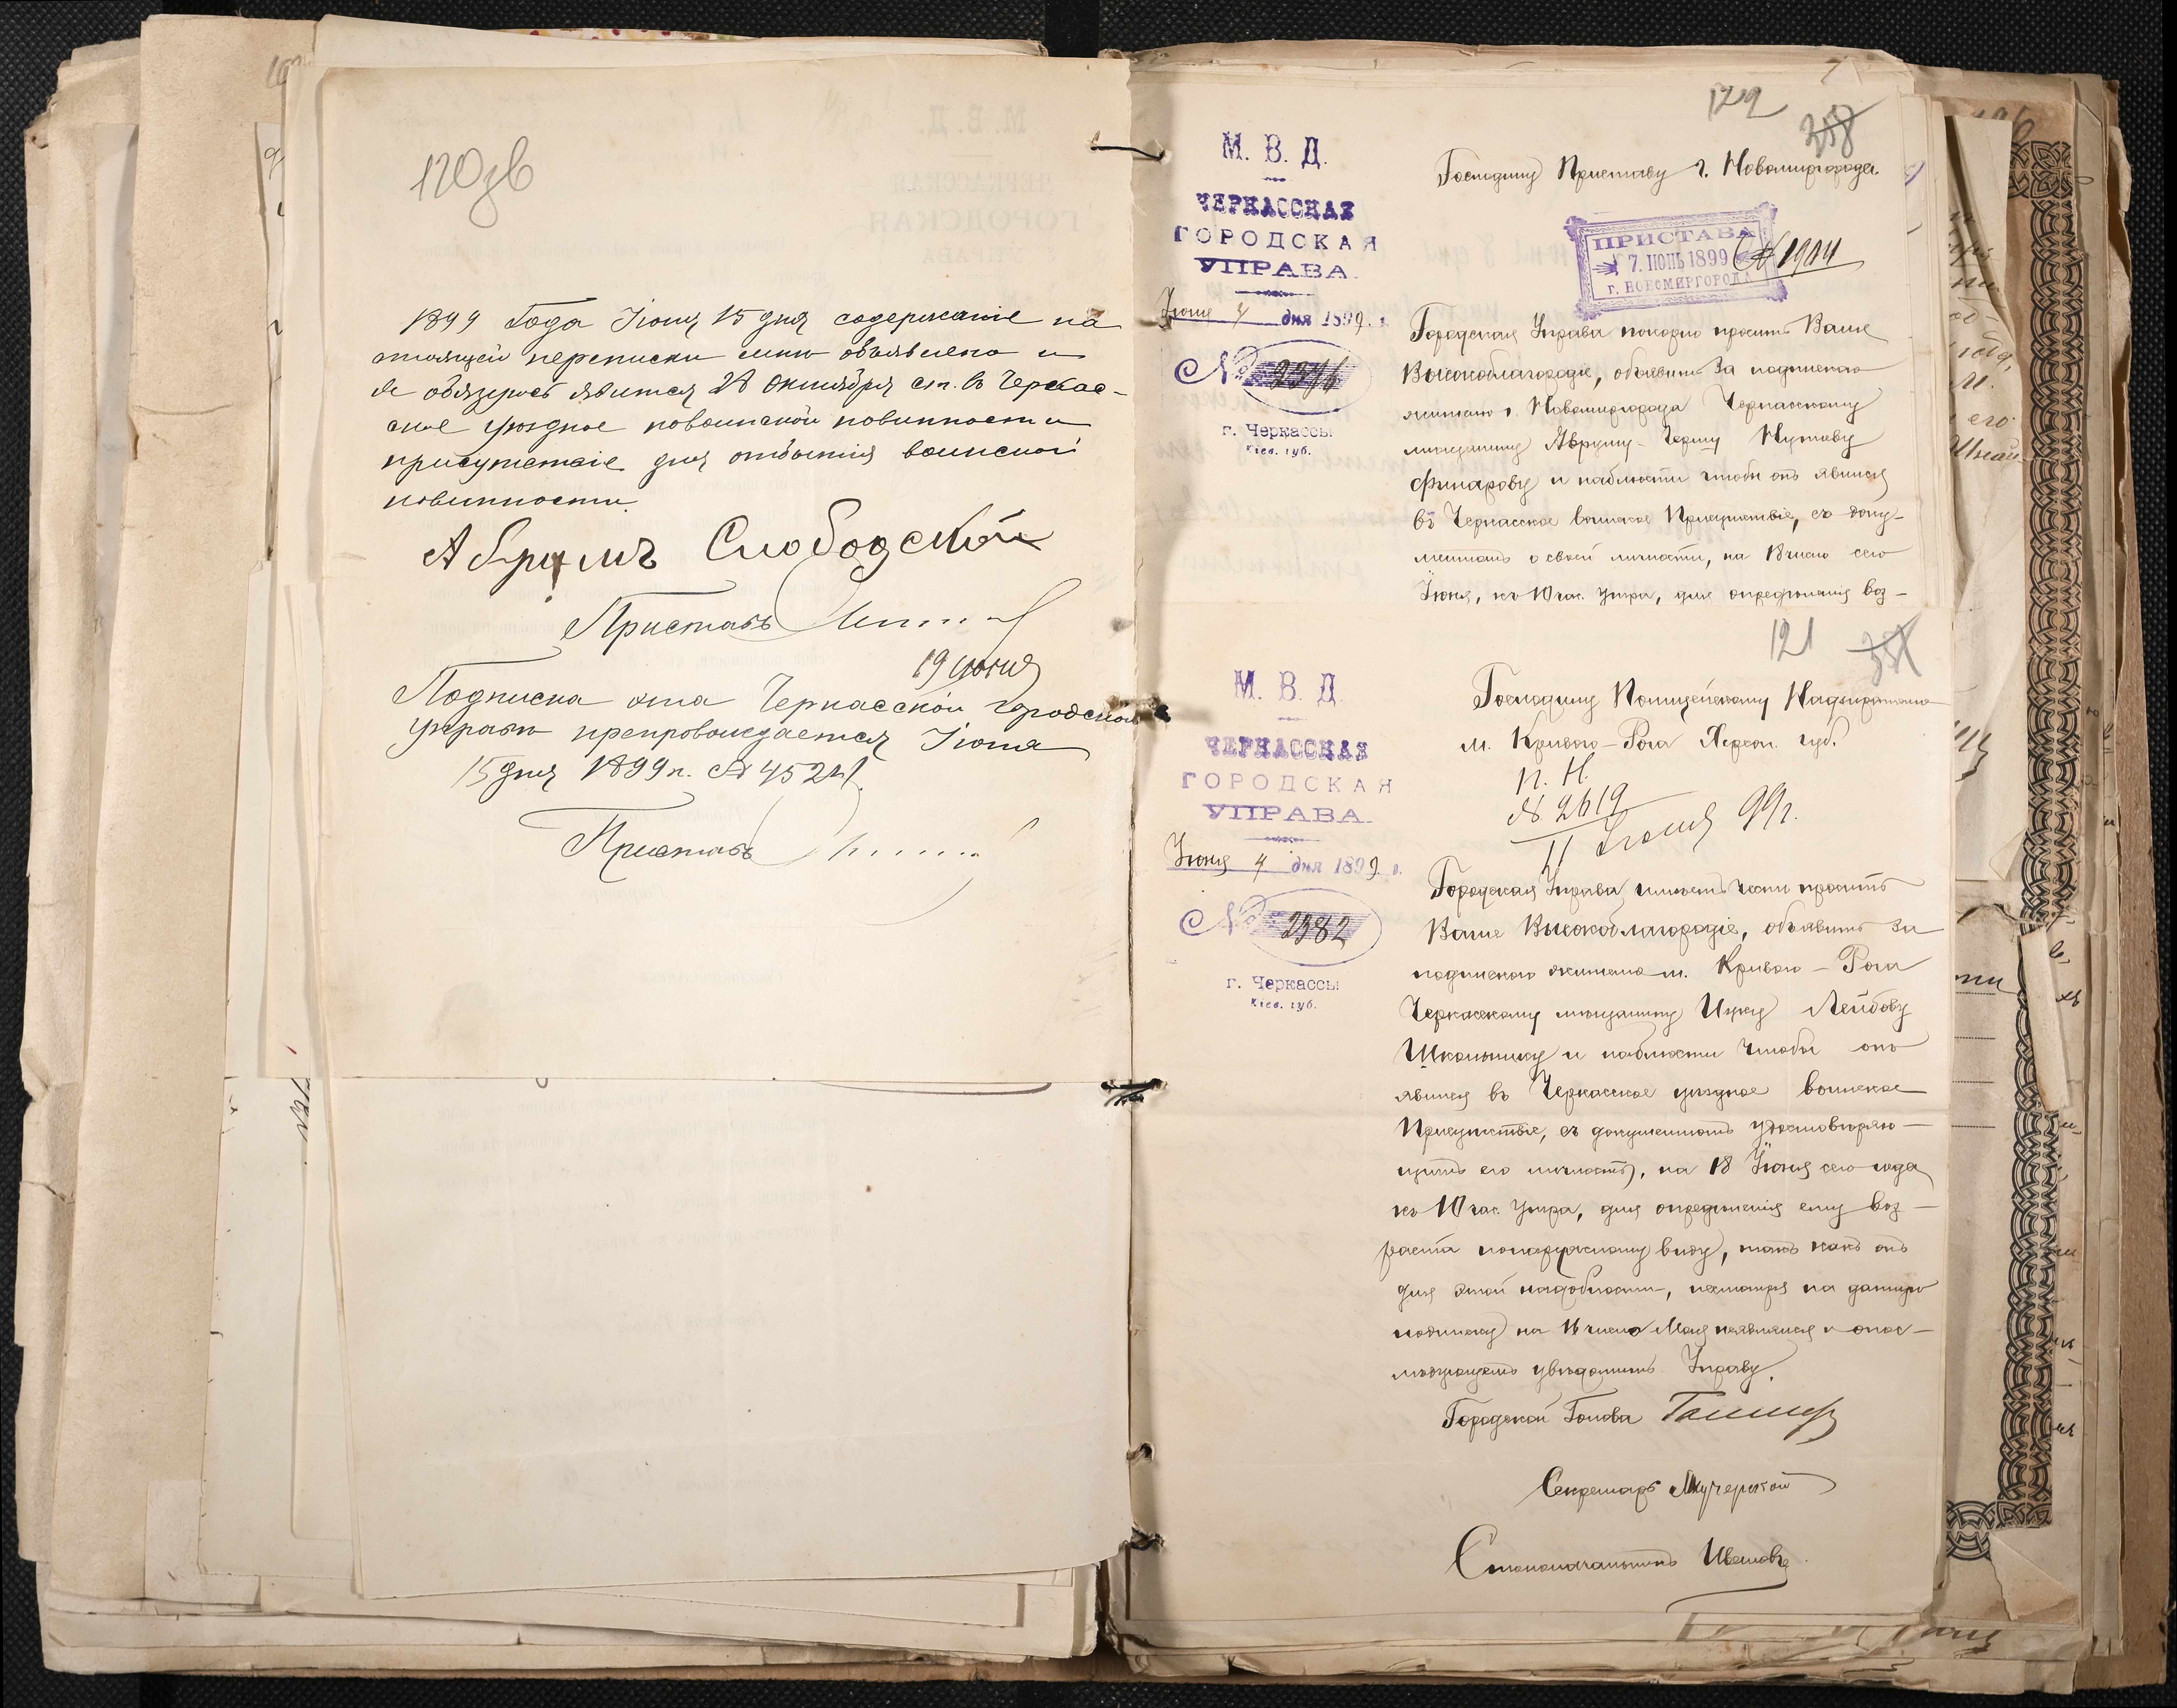 120 зв
1899 Года Іюня 15 дня содержаніе на
стоящей переписки мнѣ объявлено и
я обязуюсь явится 28 Октября ст. въ Черкас-
ское уѣздное повоинской повинности
присутствіе для отбытія воинской
повинности.
Абрумъ Слободской
Приставъ
19 июня
Подписка эта Черкасской городской
Управѣ препровождается Іюня
15 дня 1899 г. № 4524.
Приставъ
122
М. В. Д.
ЧЕРКАССКАЯ
ГОРОДСКАЯ
УПРАВА.
Іюня 4 дня 1899 г.
№ 2376
г. Черкассы
Кіев. губ.
Господину Приставу г. Новомиргорода.
ПРИСТАВА
7. ІЮНЬ 1899
г. НОВОМИРГОРОДА
№ 1944
Городская Управа покорно проситъ Ваше
Высокоблагородіе, объявить за подпискою
жителю г. Новомиргорода Черкасскому
мѣщанину Абруму-Гершу Нутову
и наблюсти чтобы онъ явился
въ Черкасское воинское Присутствіе, съ доку-
ментомъ о своей личности, на 18 число сего
Іюня, къ 10 час. утра, для опредѣленія воз-
121
М. В. Д.
ЧЕРКАССКАЯ
ГОРОДСКАЯ
УПРАВА.
Іюня 4 дня 1899 г.
№ 2382
г. Черкассы
Кіев. губ.
Господину Полицейскому Надзирателю
м. Кривого-Рога Херсон. губ.
П. Н.
№ 2619
11 Іюня 99 г.
Городская Управа имѣетъ честь просить
Ваше Высокоблагородіе, объявить за
подпискою жителю м. Кривого-Рога
Черкасскому мѣщанину Ицку Лейбову
Школьнику и наблюсти чтобы онъ
явился въ Черкасское уѣздное воинское
Присутствіе, съ документомъ удостовѣряю-
щимъ его личность, на 18 Іюня сего года
къ 10 час. утра, для опредѣленія ему воз-
раста понаружному виду, такъ какъ онъ
для этой надобности, несмотря на данную
подписку на 18 число Мая неявился и опос-
лѣдующемъ увѣдомить Управу.
Городской Голова
Секретарь
Столоначальникъ